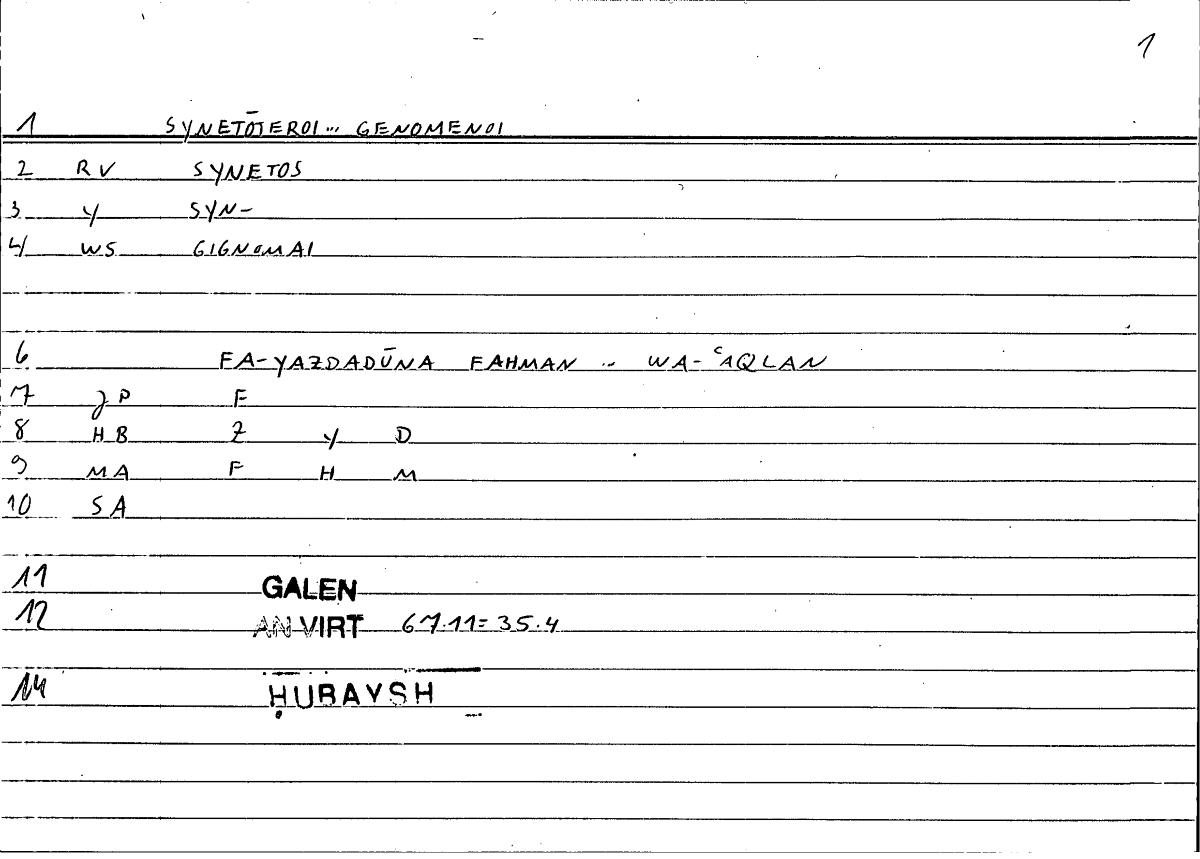 1
1 SYNETŌTEROI... GENOMENOI
2 RV SYNETOS
3 Y SYN-
4 WS GIGNOMAI
6 FA-YAZDADŪNA FAHMAN .. WA-ʿAQLAN
7 JP F
8 HB Z Y D
9 MA F H M
10 SA
11 GALEN
12 AN VIRT 67.11=35.4
14 ḤUBAYSH